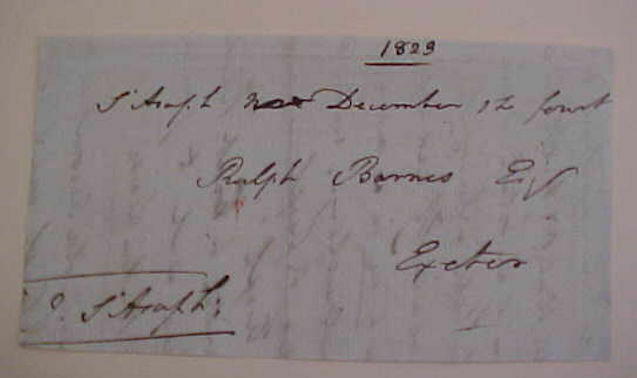 1829
St Asaph December the fourt
Ralph Barnes Esq
Exeter
J. St Asaph: